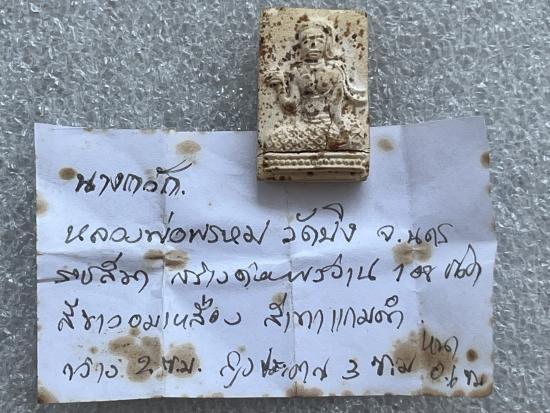 นางกวัก.
หลวงพ่อพรหม วัดบึง จ.นคร
ราชสีมา สร้างด้วยพรว่าน 108 ชนิด
สีขาวอมเหลือง สีเทาแกมดำ.
กว้าง 2 ซ.ม. สูงประมาณ 3 ซ.ม หนา
0.6 ซม